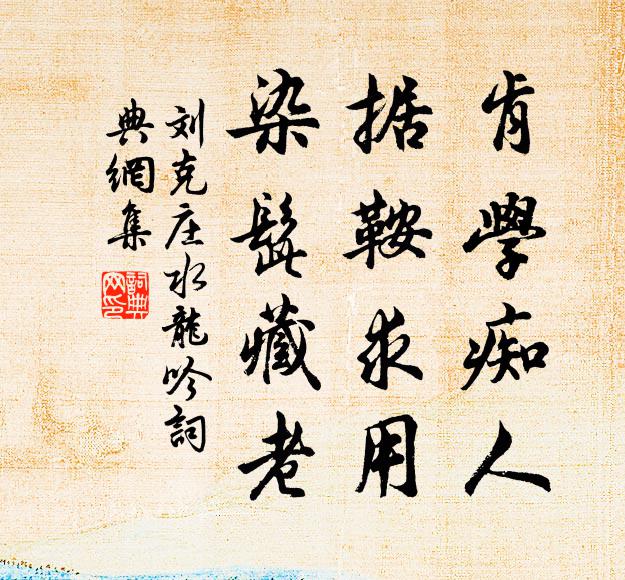 肯學痴人
据鞍求用
染髭藏老
刘克庄水龍吟詞
典網集
詞典网印